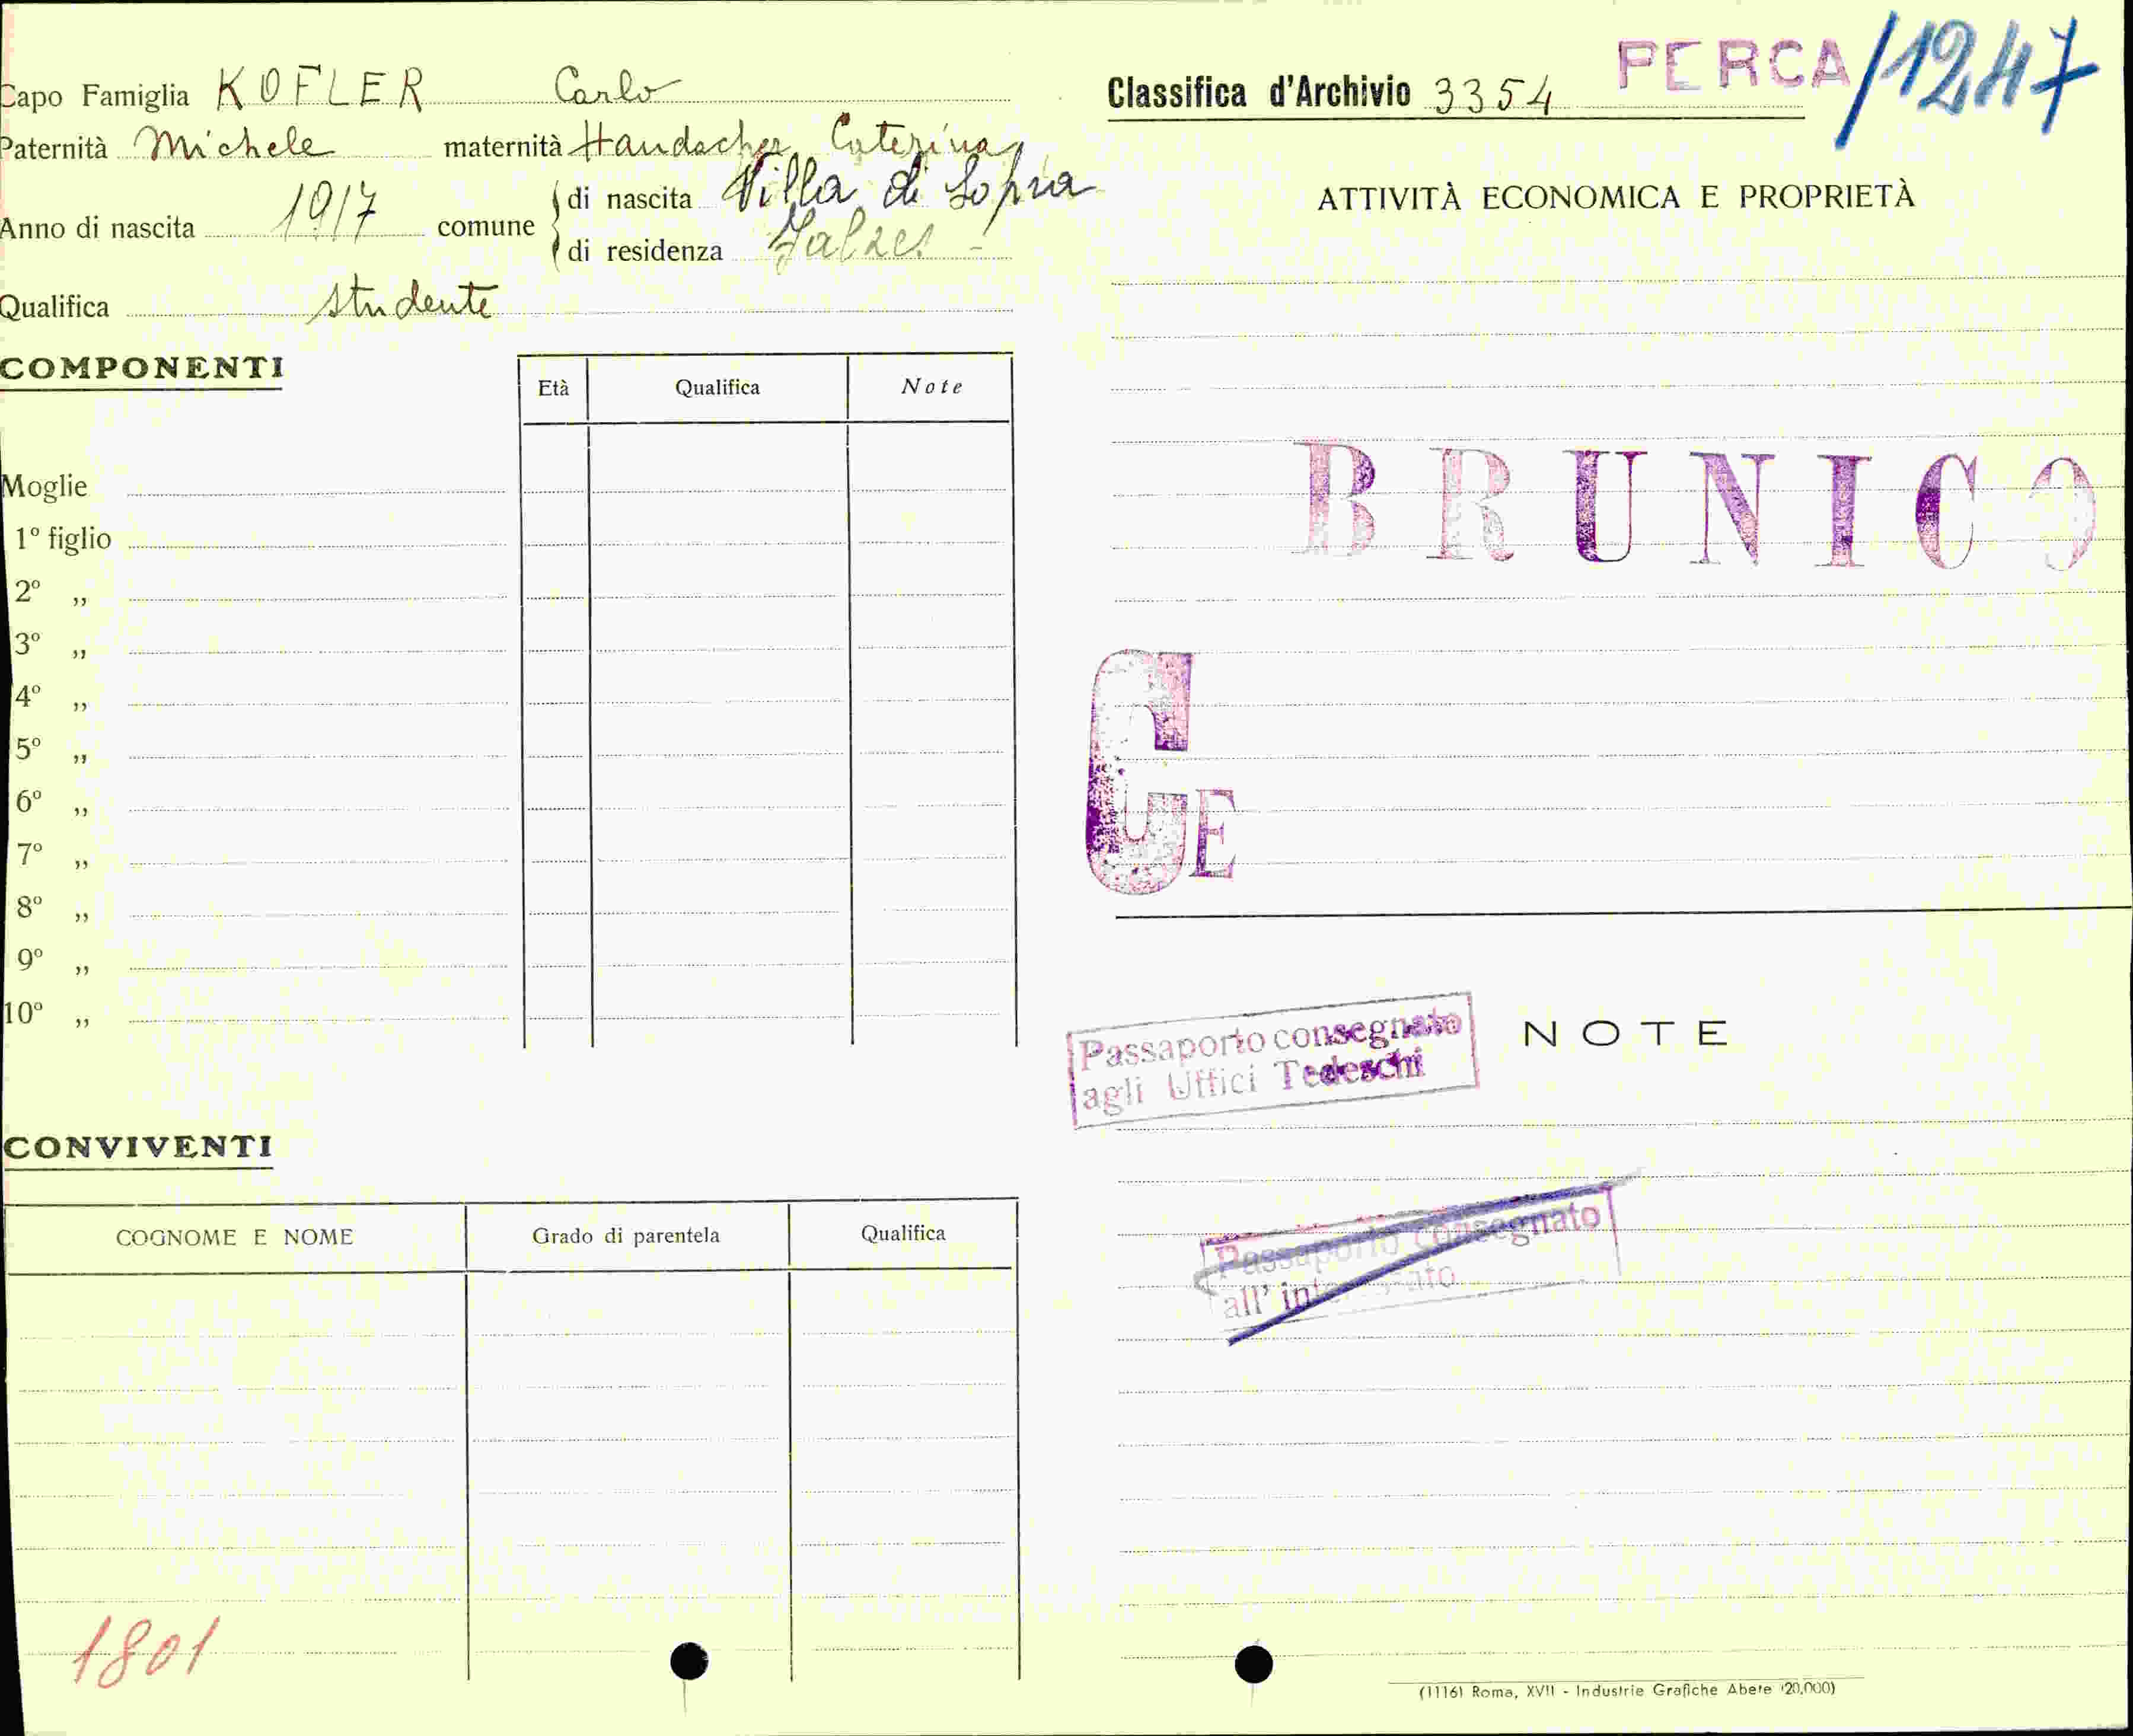 Capo Famiglia KOFLER Carlo
Paternità Michele maternità Caterina
Anno di nascita 1917 comune di nascita Villa di Sopra
di residenza
Qualifica studente
COMPONENTI
Età Qualifica Note
Moglie
1º figlio
2º ,,
3º ,,
4º ,,
5º ,,
6º ,,
7º ,,
8º ,,
9º ,,
10º ,,
CONVIVENTI
COGNOME E NOME Grado di parentela Qualifica
1801
Classifica d'Archivio 3354 PERCA/1247
ATTIVITÀ ECONOMICA E PROPRIETÀ
BRUNICO
CE
Passaporto consegnato
agli Uffici Tedeschi
NOTE
Passaporto consegnato
all'interessato
(1116) Roma, XVII - Industrie Grafiche Abete (20.000)